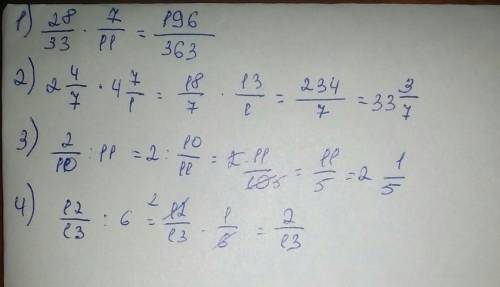 1) 28/33 · 7/11 = 196/363
2) 2 4/7 · 4 7/1 = 18/7 · 13/1 = 234/7 = 33 3/7
3) 2/10 : 11 = 2 : 10/11 = 2·11/10 5 = 11/5 = 2 1/5
4) 12/13 : 6 = 2 12/13 · 1/6 = 2/13